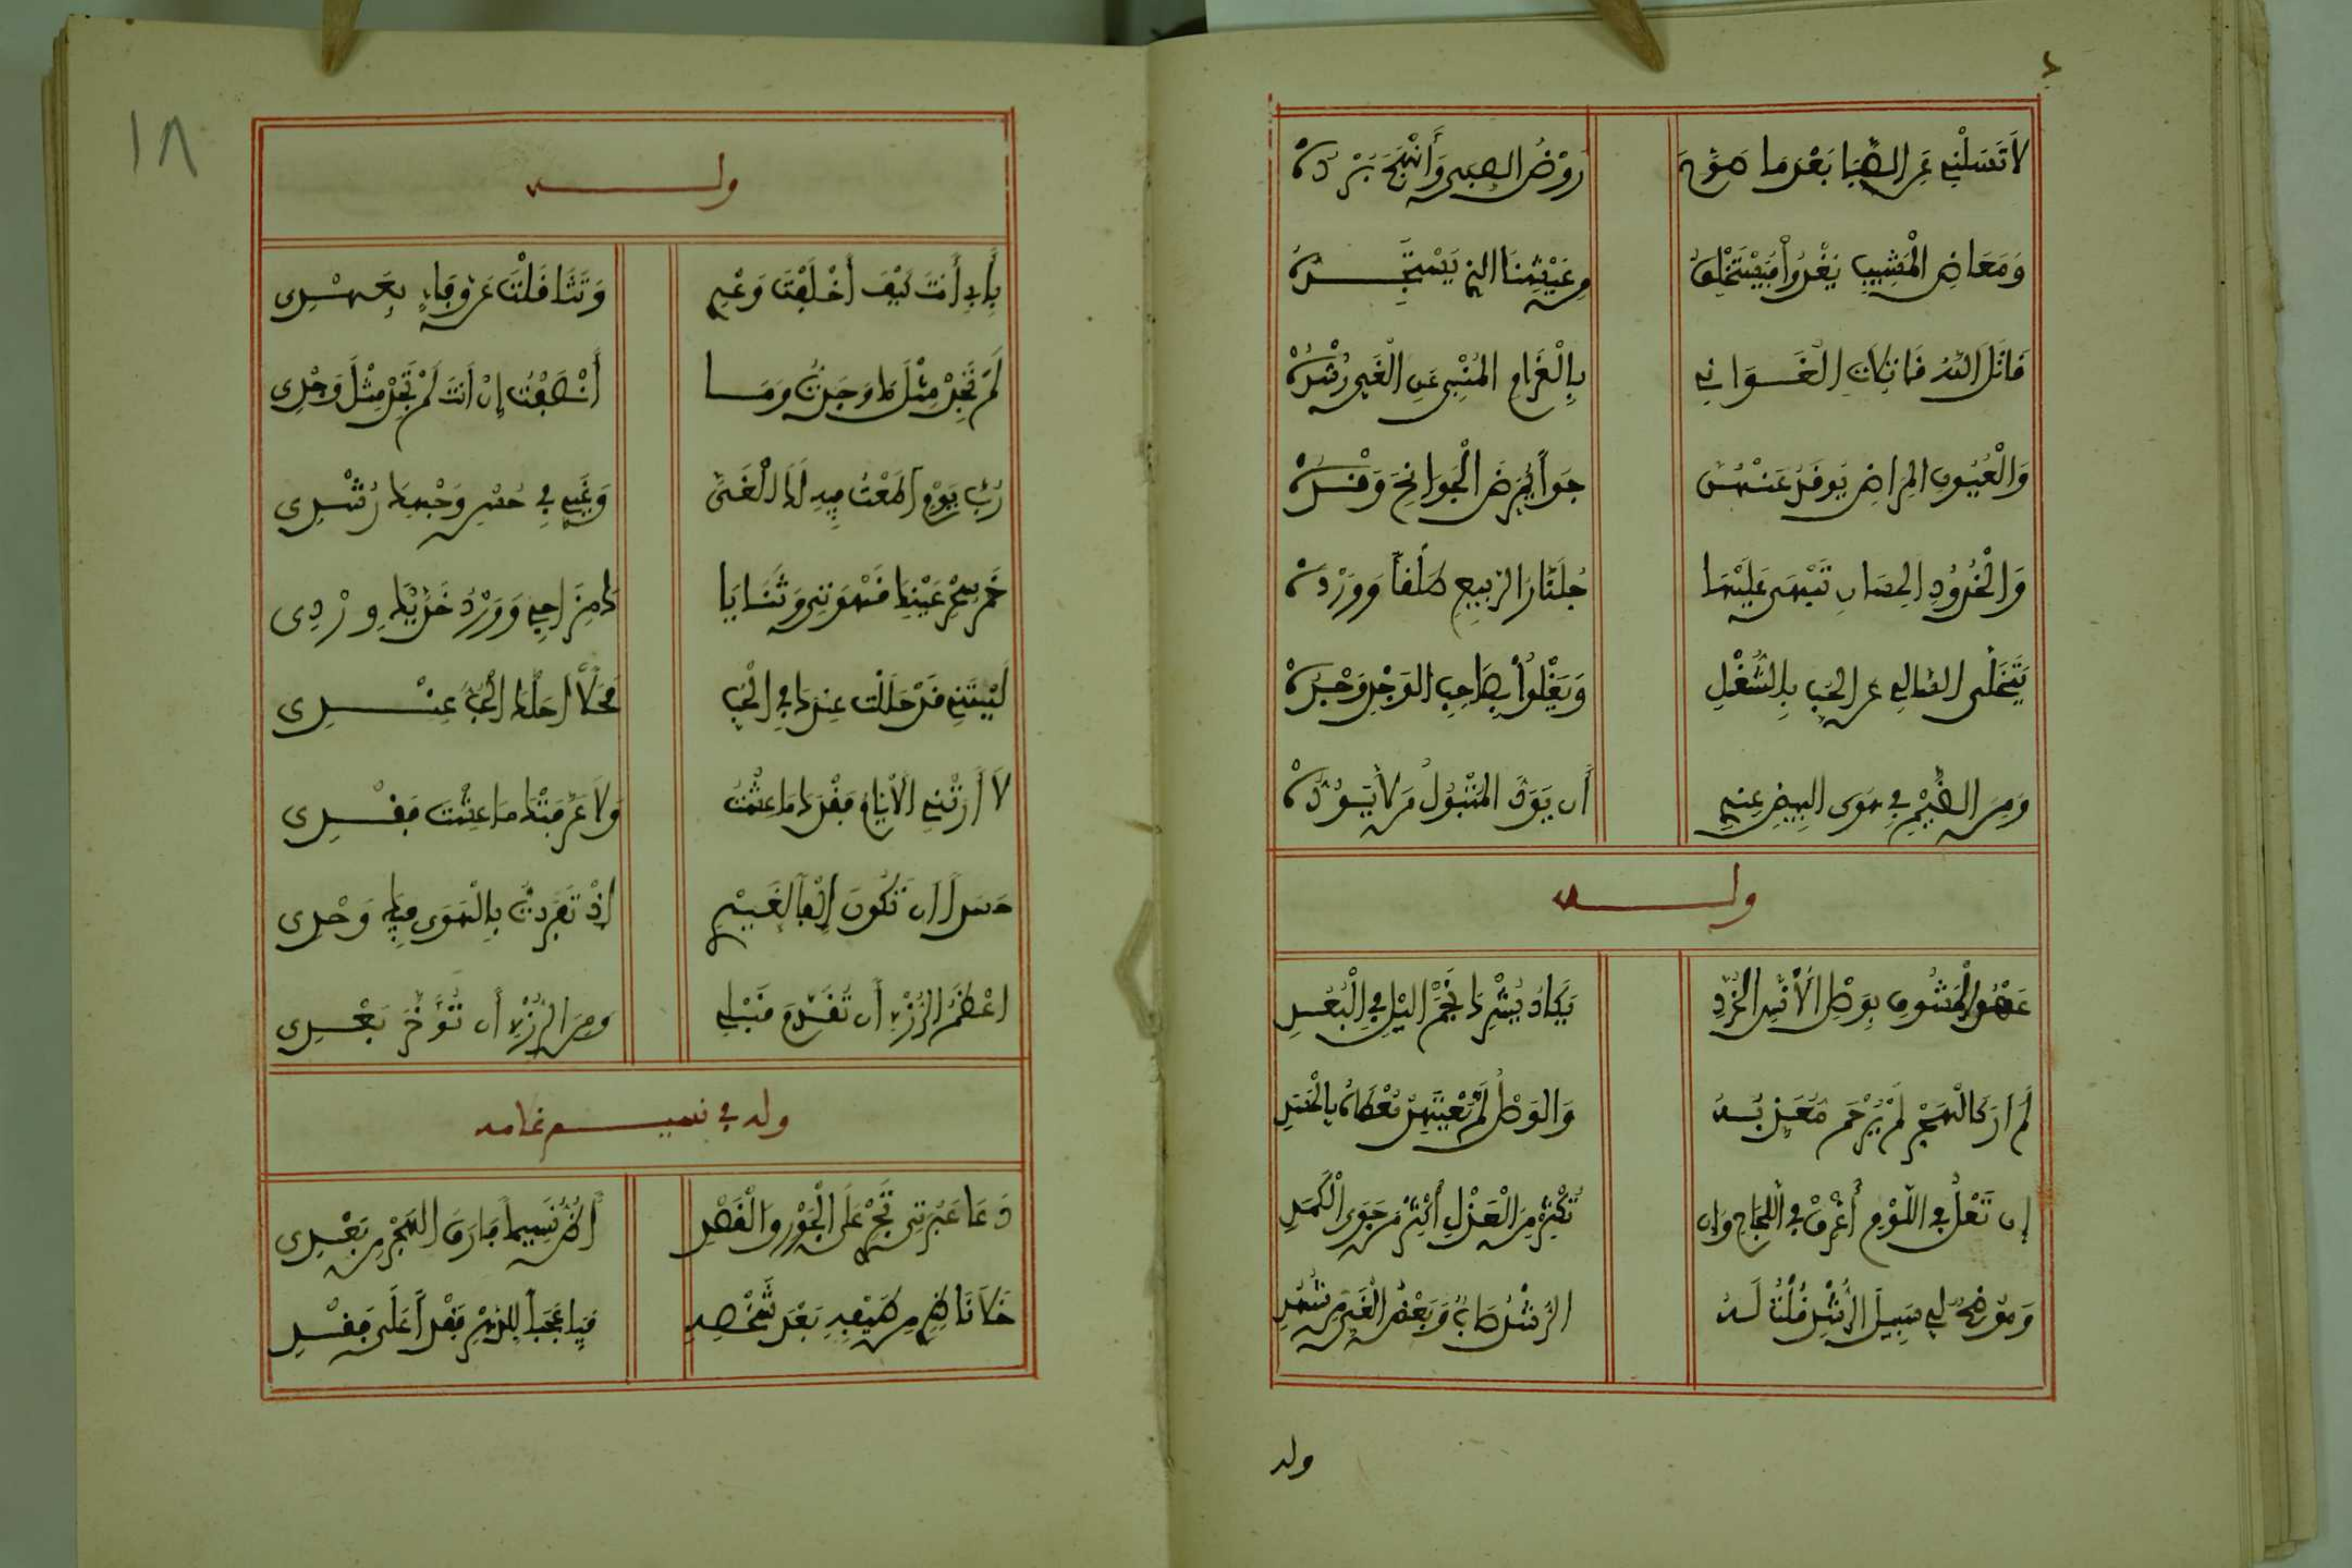 لَا تَسَلْنِي عَنِ الصِّبَا بَعْدَ مَا صَوَّحَ رَوْضُ الصِبَى وَأَنْهَجَ بَرْدُهْ
وَمَعَاضِ الْمَشِيبِ يَغْدُوا فَيَسْتَخْلِفُ مِن عَيْشِنَا الذِي يَسْتَجِدُّهْ
قَاتَلَ اللهُ فَاتِكَاتِ الْغَوَانِي بِالْغَرَامِ الْمُنْبِي عَنِ الْغَيِّ رُشْدُهْ
وَالْعُيُونِ الْمِرَاضِ يُوقَدُ عَنْهُنَّ جَوًا يُمْرِضُ الْجَوَانِحَ وَقْدُهْ
وَالْخُدُودِ الْحِسَانِ تَبْهَى عَلَيْهَا جُلَّنَارُ الرَّبِيعِ طَلْقًا وَوَرْدُهْ
يَتَخَلَّى السَّالِي عَنِ الْحُبِّ بِالشُّغْلِ وَيَغْلُوا بِصَاحِبِ الْوَجْدِ وَجْدُهْ
وَمِنَ الضَّيْمِ فِي هَوَى الْبِيضِ عِنْدِي أَن يَوَدَّ الْمَتْبُولُ مَن لَا يَوَدُّهْ
ولـه
الْمَشُوقِ بِوَصْلِ الْأُنَّسِ الْخُرَّدِ يَكَادُ يُشْرِكُ نَجْمَ الليْلِ فِي الْبُعُدِ
لَمْ أَرَ كَالْهَجْرِ لَمْ يُرْحَمْ مُعَذَّبُهُ وَالْوَصْلِ لَمْ يُعْتَمَدْ مُعْطَاهُ بِالْحَسَدِ
إِن تَعْلُ فِي اللَّوْمِ أُغْرِقْ فِي اللَّجَاجِ وَإِن تُكْثِرْ مِنَ الْعَذْلِ أُكْثِرْ مِن جَوَى الْكَمَدِ
وَمُوضِحٌ لِي سَبِيلَ الرُّشْدِ قُلْتُ لَهُ الرُّشْدُ صَابٌ وَبَعْضُ الْغَيِّ مِن شُهُدِ
وله
١٨
ولـه
بِأَبِي أَنتَ كَيْفَ أَخْلَفْتَ وَعْدِي وَتَثَاقَلْتَ عَن وَفَاءٍ بِعَهْدِي
لَمْ تَجِدْ مِثْلَ مَا وَجَدتُّ وَمَا أَنْصَفْتَ إِنْ أَنتَ لَمْ تَجِدْ مِثْلَ وَجْدِي
رُبَّ يَوْمٍ أَطَعْتُ فِيهِ لَكَ الْغَيَّ وَغَيِّي فِي حُسْنِ وَجْهِكَ رُشْدِي
خَمْرُ سِحْرِ عَيْنَيْكَ قَهْوَتِي وَثَنَايَا كَ مِزَاجِي وَوَرْدُ خَدَّيْكَ وِرْدِي
لَيْتَنِي قَدْ حَلَلْتُ عِندَكَ فِي الْحُبِّ مَحَلًّا احَلَّكَ الْحُبُّ عِنْدِي
لَا أَرَتْنِي الْأَيَّامُ فَقْدَكَ مَا عِشْتُ وَلَا عَرَّفَتْكَ مَا عِشْتَ فَقْدِي
حَسَدًا أَن تَكُونَ إِلْفًا لِغَيْرِي إِذْ تَفَرَّدتُّ بِالْهَوَى فِيكَ وَحْدِي
اعْظَمُ الرُّزْءِ أَن تُقَدَّمَ قَبْلِي وَمِنَ الرُّزْءِ أَن تُؤَخَّرَ بَعْدِي
وله في نسيم غلامه
دَعَا عَبْرَتِي تَجْرِ عَلَى الْجَوْرِ وَالْقَصْدِ أَظُنُّ نَسِيمًا قَارَفَ الْهَجْرَ مِن بَعْدِي
خَلَا نَاظِرِي مِن طَيْفِهِ بَعْدَ شَخْصِهِ فَيَا عَجَبًا لِلدَّهْرِ فَقْدًا عَلَى فَقْدِ